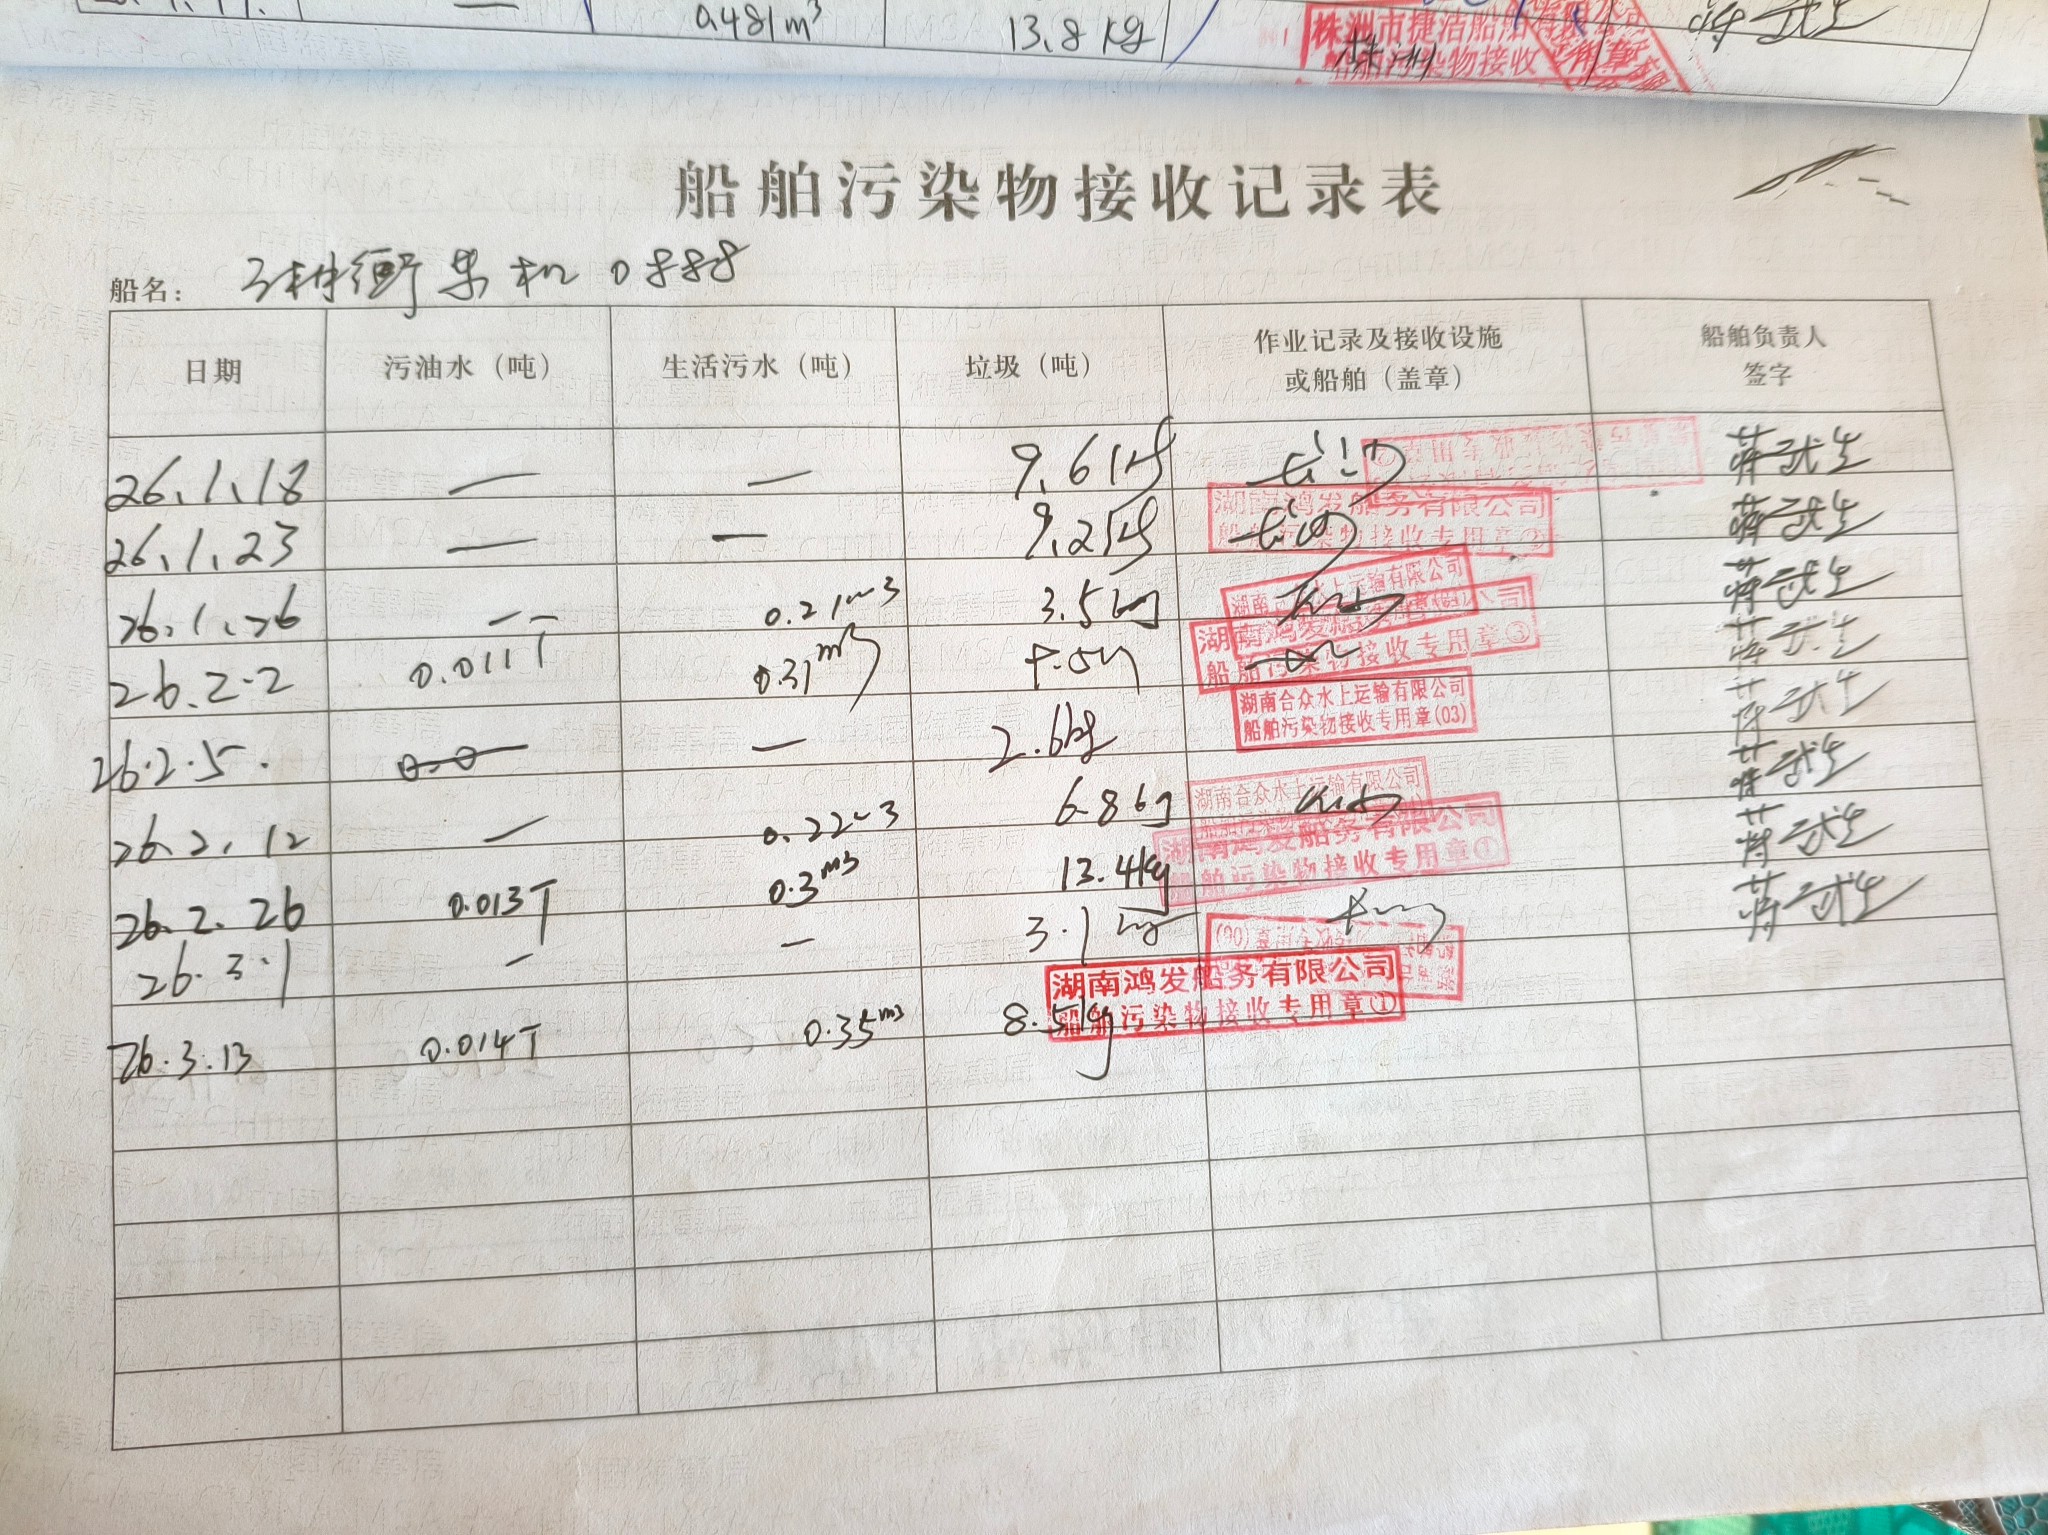 0.481m³ 13.8kg
株洲市捷洁船舶有限公司
船舶污染物接收
株洲
船舶污染物接收记录表
船名: 0888
日期 污油水（吨） 生活污水（吨） 垃圾（吨） 作业记录及接收设施或船舶（盖章） 船舶负责人签字
26.1.18 — — 9.6kg 蒋武生
26.1.23 — — 9.2kg 湖南鸿发船务有限公司 船舶污染物接收专用章② 蒋武生
26.1.26 — 0.21m3 3.5kg 湖南合众水上运输有限公司 蒋武生
26.2.2 0.011T 0.31m3 湖南鸿发船务有限公司 船舶污染物接收专用章③ 蒋武生
26.2.5. — — 2.6kg 湖南合众水上运输有限公司 船舶污染物接收专用章(03) 蒋武生
26.2.12 — 0.22m3 6.8kg 湖南合众水上运输有限公司 蒋武生
26.2.26 0.013T 0.3m3 13.4kg 湖南鸿发船务有限公司 船舶污染物接收专用章① 蒋武生
26.3.1 — — 3.1kg 蒋武生
26.3.13 0.014T 0.35m3 8.5kg 湖南鸿发船务有限公司 船舶污染物接收专用章①